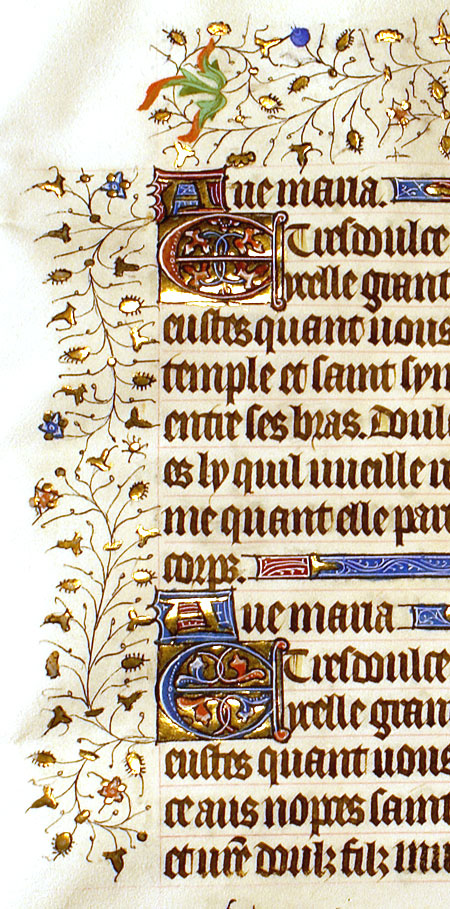 Aue maria.
E tresdoulce
ycelle grant
eustes quant uous
temple et saint sym
entre ses bras. Doul
es ly quil uueille u
me quant elle par
corps.
Aue maria
E tresdoulce
ycelle gran
eustes quant uous
ce aus nopces saint
et ure doulz filz